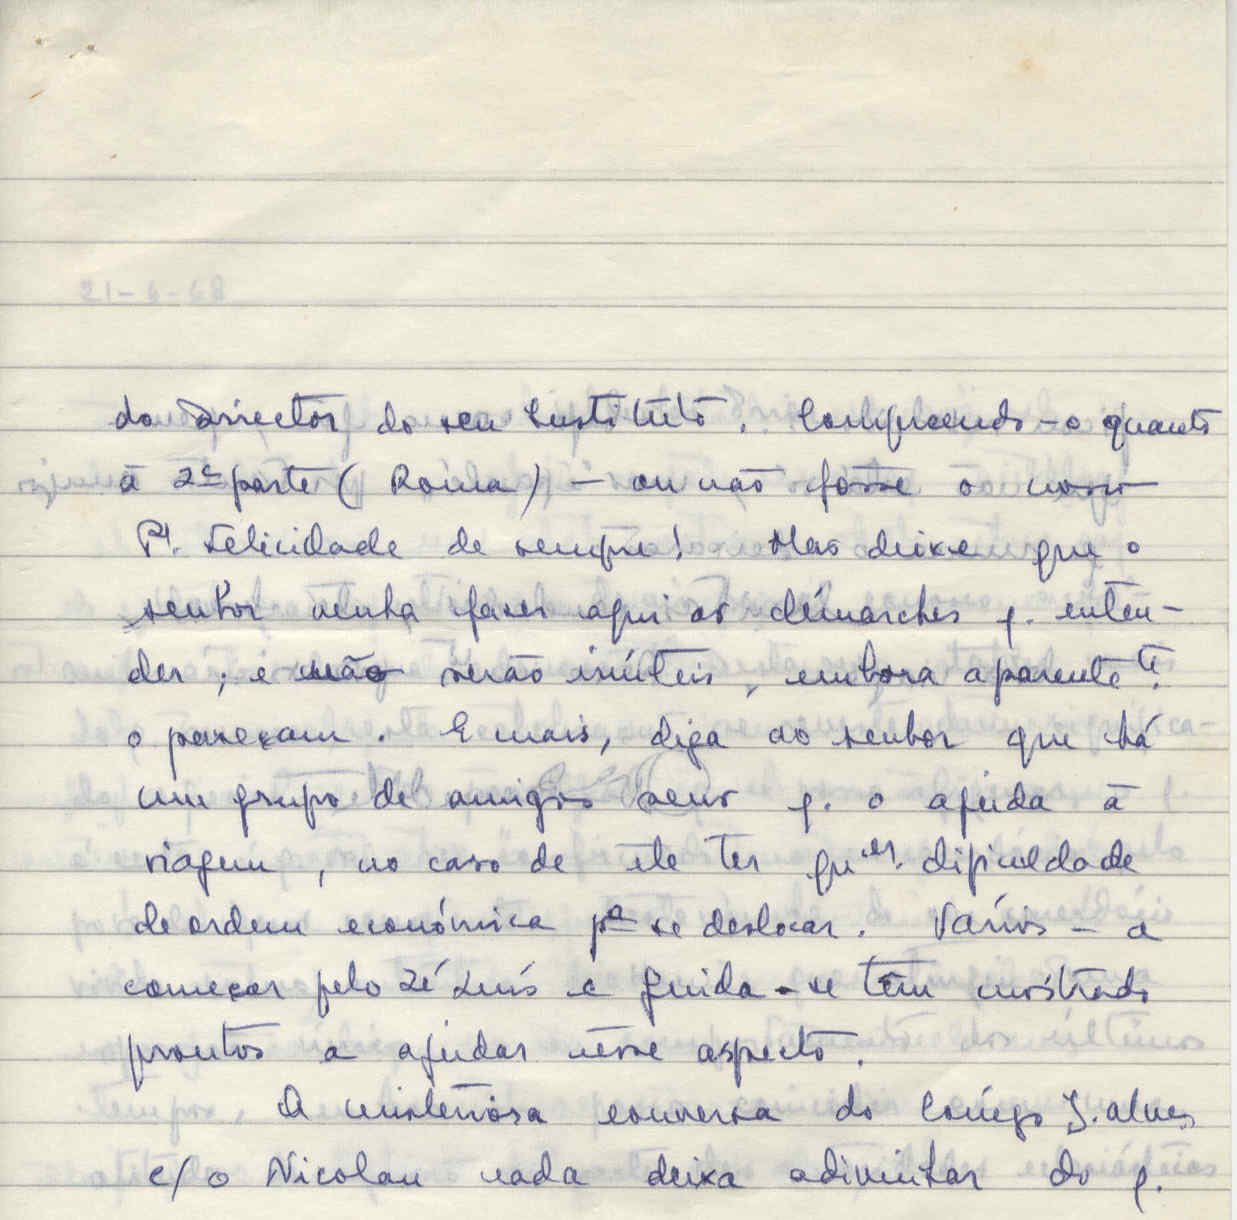 21-6-68
do Director do seu Instituto. Compreendo-o quanto
à 2ª parte (Roma) – ou não fosse o nosso
Pe. Felicidade de sempre! Mas deixe que o
senhor venha fazer aqui as démarches q. enten-
der; e não serão inúteis, embora aparentete.
o pareçam. E mais, diga ao senhor que há
um grupo de amigos seus q. o ajuda à
viagem, no caso de ele ter qu.er. dificuldade
de ordem económica pª se deslocar. Vários – a
começar pelo Zé Luís e Guida – se têm mostrado
prontos a ajudar nesse aspecto.
A misteriosa conversa do Cónego J. Alves
c/ o Nicolau nada deixa adivinhar do q.